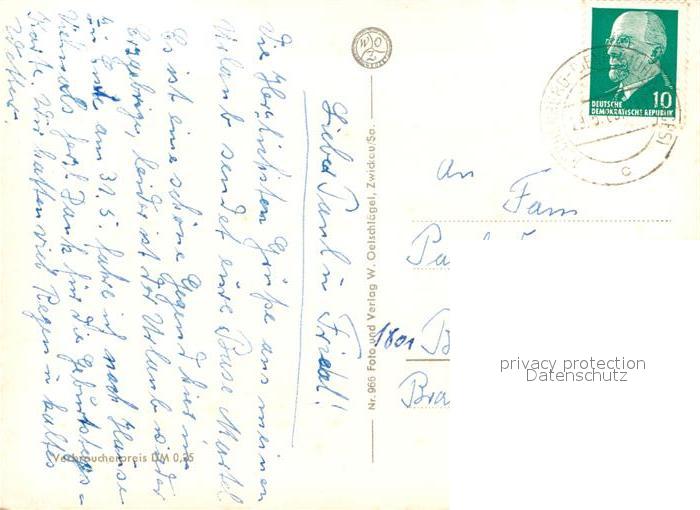 Lieber Paul u. Friedl!
Die herzlichsten Grüße aus meinen
Urlaub sendet eure Base Martel
Es ist eine schöne Gegend hier im
Erzgebirge, leider ist der Urlaub wieder
zu Ende am 31. 5. fahre ich nach Hause
Vielmals herzl. Dank für die Geburtstags-
karte. Wir hatten viel Regen u. kaltes
Wetter.
Verbraucherpreis DM 0,25
WO
Nr. 966 Foto und Verlag W. Oelschlägel, Zwickau/Sa.
10
DEUTSCHE
DEMOKRATISCHE REPUBLIK
An
Fam
Pa
1801 B
Bra
privacy protection
Datenschutz